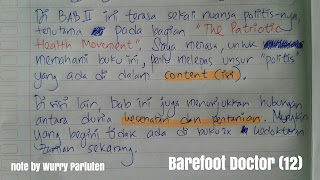 Di BAB II ini terasa sekali nuansa politis-nya,
terutama pada bagian "The Patriotic
Health Movement". Saya merasa, untuk
memahami buku ini, perlu melepas unsur "politis"
yang ada di dalam content (isi).
Di sisi lain, bab ini juga menunjukkan hubungan
antara dunia kesehatan dan pertanian. Mungkin
yang begini tidak ada di buku2x kedokteran
zaman sekarang.
note by Wurry Parluten
Barefoot Doctor (12)